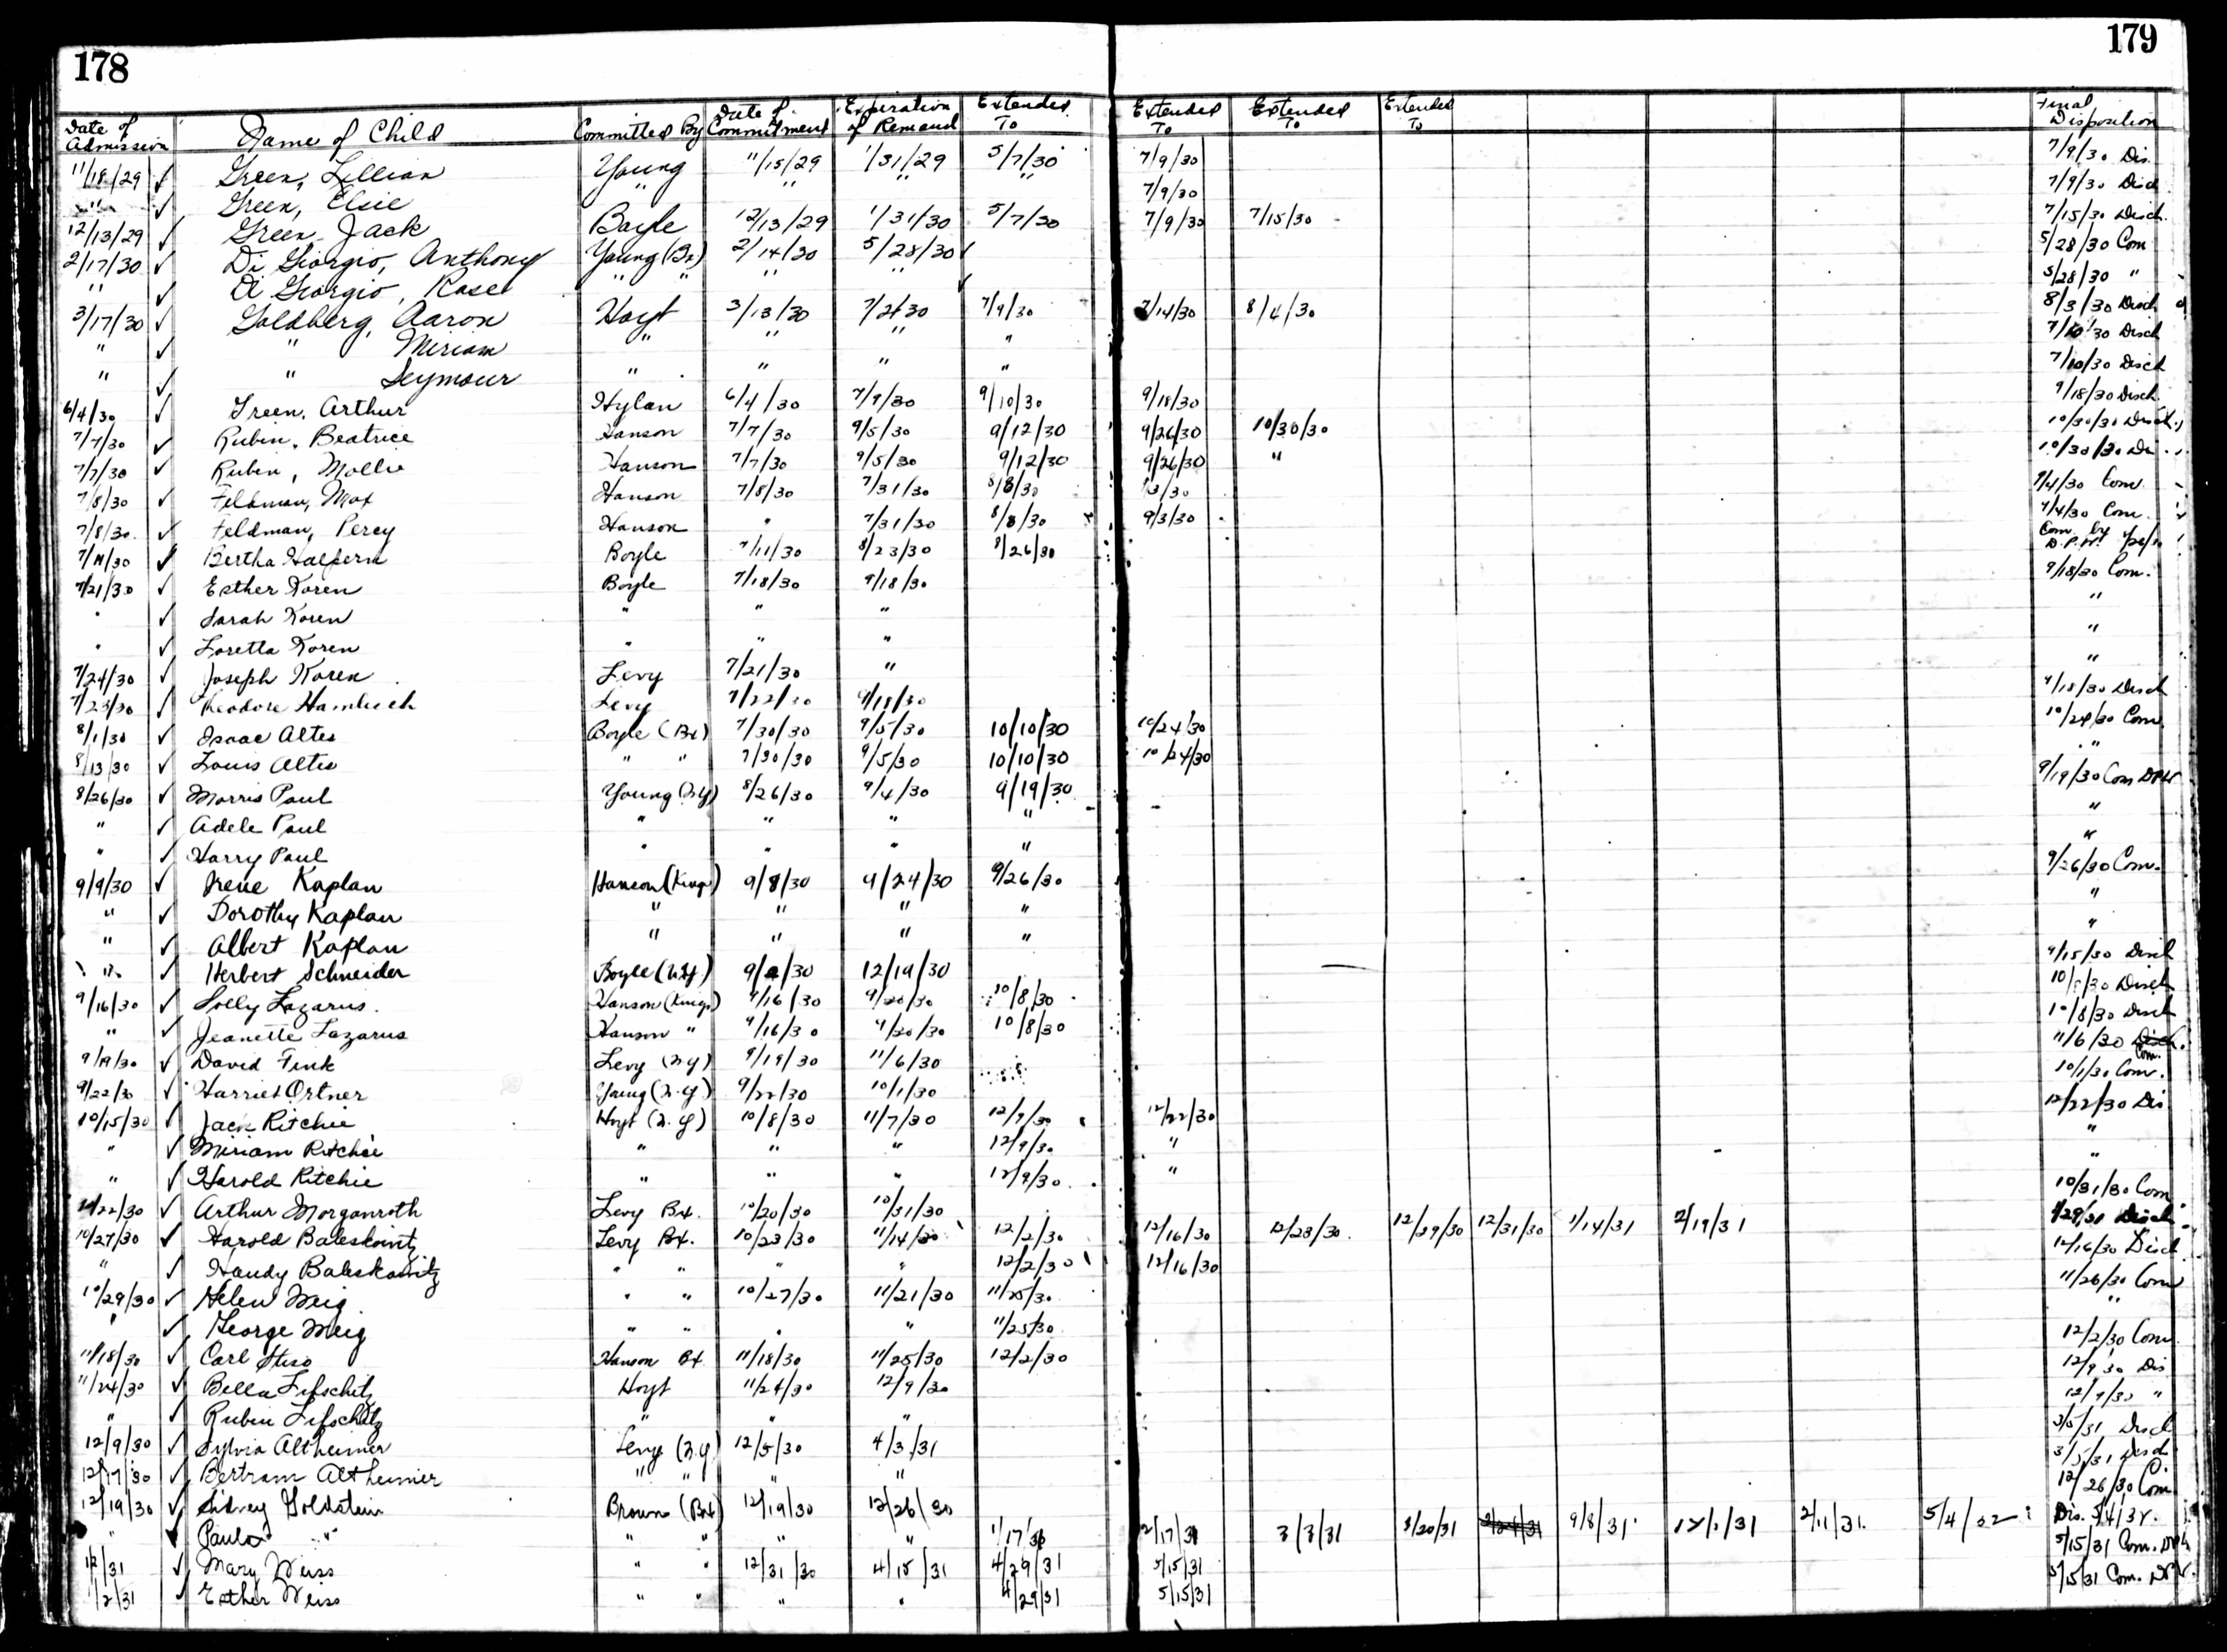 178
179
Date of Admission Name of Child Committed By Date of Commitment Expiration of Remand Extended To Extended To Extended To Extended To Final Disposition
11/18/29 ✓ Green, Lillian Young 11/15/29 1/31/29 5/7/30 7/9/30 7/9/30 Dis.
" ✓ Green, Elsie " " " " 7/9/30 7/9/30 Disch
12/13/29 ✓ Green, Jack Boyle 12/13/29 1/31/30 5/7/30 7/9/30 7/15/30 7/15/30 Disch.
2/17/30 ✓ Di Giorgio, Anthony Young (Bx) 2/14/30 5/28/30 ✓ 5/28/30 Com
" ✓ Di Giorgio, Rose " " " " ✓ 5/28/30 "
3/17/30 ✓ Goldberg, Aaron Hoyt 3/13/30 7/2/30 7/9/30 7/14/30 8/4/30 8/3/30 Disch
" ✓ " Miriam " " " " 7/10/30 Disch
" ✓ " Seymour " " " " 7/10/30 Disch
6/4/30 ✓ Green, Arthur Hylan 6/4/30 7/9/30 9/10/30 9/18/30 9/18/30 Disch.
7/7/30 ✓ Rubin, Beatrice Hanson 7/7/30 9/5/30 9/12/30 9/26/30 10/30/30 10/30/30 Disch.
7/7/30 ✓ Rubin, Mollie Hanson 7/7/30 9/5/30 9/12/30 9/26/30 " 10/30/30 Dis
7/8/30 ✓ Feldman, Max Hanson 7/8/30 7/31/30 8/8/30 /3/30 9/4/30 Com.
7/8/30 ✓ Feldman, Percy Hanson " 7/31/30 8/8/30 9/3/30 9/4/30 Com.
7/11/30 ✓ Bertha Halpern Boyle 7/11/30 8/23/30 8/26/30 Com. by D.P.W.
7/21/30 ✓ Esther Koren Boyle 7/18/30 9/18/30 9/18/30 Com.
" ✓ Sarah Koren " " " "
" ✓ Loretta Koren " " " "
7/24/30 ✓ Joseph Koren Levy 7/21/30 " "
7/23/30 ✓ Theodore Hamlisch Levy 7/22/30 9/18/30 9/18/30 Disch
8/1/30 ✓ Isaac Altes Boyle (Bx) 7/30/30 9/5/30 10/10/30 10/24/30 10/24/30 Com.
8/13/30 ✓ Louis Altes " " 7/30/30 9/5/30 10/10/30 10/24/30 "
8/26/30 ✓ Morris Paul Young (N.Y) 8/26/30 9/4/30 9/19/30 9/19/30 Com DPW
" ✓ Adele Paul " " " " "
" ✓ Harry Paul " " " " "
9/9/30 ✓ Irene Kaplan Hanson (Kings) 9/8/30 9/24/30 9/26/30 9/26/30 Com.
" ✓ Dorothy Kaplan " " " " "
" ✓ Albert Kaplan " " " " "
" ✓ Herbert Schneider Boyle (N.Y.) 9/9/30 12/19/30 9/15/30 Disch
9/16/30 ✓ Solly Lazarus. Hanson (Kings) 9/16/30 9/20/30 10/8/30 10/8/30 Disch
" ✓ Jeanette Lazarus Hanson " 9/16/30 9/20/30 10/8/30 10/8/30 Disch
9/19/30 ✓ David Fink Levy (N.Y) 9/19/30 11/6/30 11/6/30 Disch. Com.
9/22/30 ✓ Harriet Ortner Young (N.Y.) 9/22/30 10/1/30 10/1/30 Com.
10/15/30 ✓ Jack Ritchie Hoyt (N.Y) 10/8/30 11/7/30 12/9/30 12/22/30 12/22/30 Dis
" ✓ Miriam Ritchie " " " 12/9/30 " "
" ✓ Harold Ritchie " " " 12/9/30 " "
10/22/30 ✓ Arthur Morganroth Levy Bx. 10/20/30 10/31/30 10/31/30 Com
10/27/30 ✓ Harold Baleskowitz Levy Bx. 10/23/30 11/14/30 12/2/30 12/16/30 12/23/30 12/29/30 12/31/30 1/14/31 2/19/31 1/29/31 Disch
" ✓ Handy Baleskowitz " " " " 12/2/30 12/16/30 12/16/30 Disch
10/29/30 ✓ Helen Meig " " 10/27/30 11/21/30 11/25/30 11/26/30 Com
" ✓ George Meig " " " " 11/25/30 "
11/18/30 ✓ Carl Hanson Bx. 11/18/30 11/25/30 12/2/30 12/2/30 Com.
11/24/30 ✓ Bella Lifschitz Hoyt 11/24/30 12/9/30 12/9/30 Dis
" ✓ Rubin Lifschitz " " " 12/9/30 "
12/9/30 ✓ Sylvia Altheimer Levy (N.Y) 12/5/30 4/3/31 3/5/31 Disch
12/17/30 ✓ Bertram Altheimer " " " " 3/5/31 Disch
12/19/30 ✓ Sidney Goldstein Brown (Bx) 12/19/30 12/26/30 12/26/30 Com
" ✓ Paula " " " " " 1/17/30 2/17/31 3/3/31 3/20/31 9/8/31 12/1/31 2/11/31. 5/4/32 Dis. 5/4/32.
1/2/31 ✓ Mary Weiss " " 12/31/30 4/15/31 4/29/31 5/15/31 5/15/31 Com. DPW
1/2/31 ✓ Esther Weiss " " " " 4/29/31 5/15/31 5/15/31 Com. DPW.